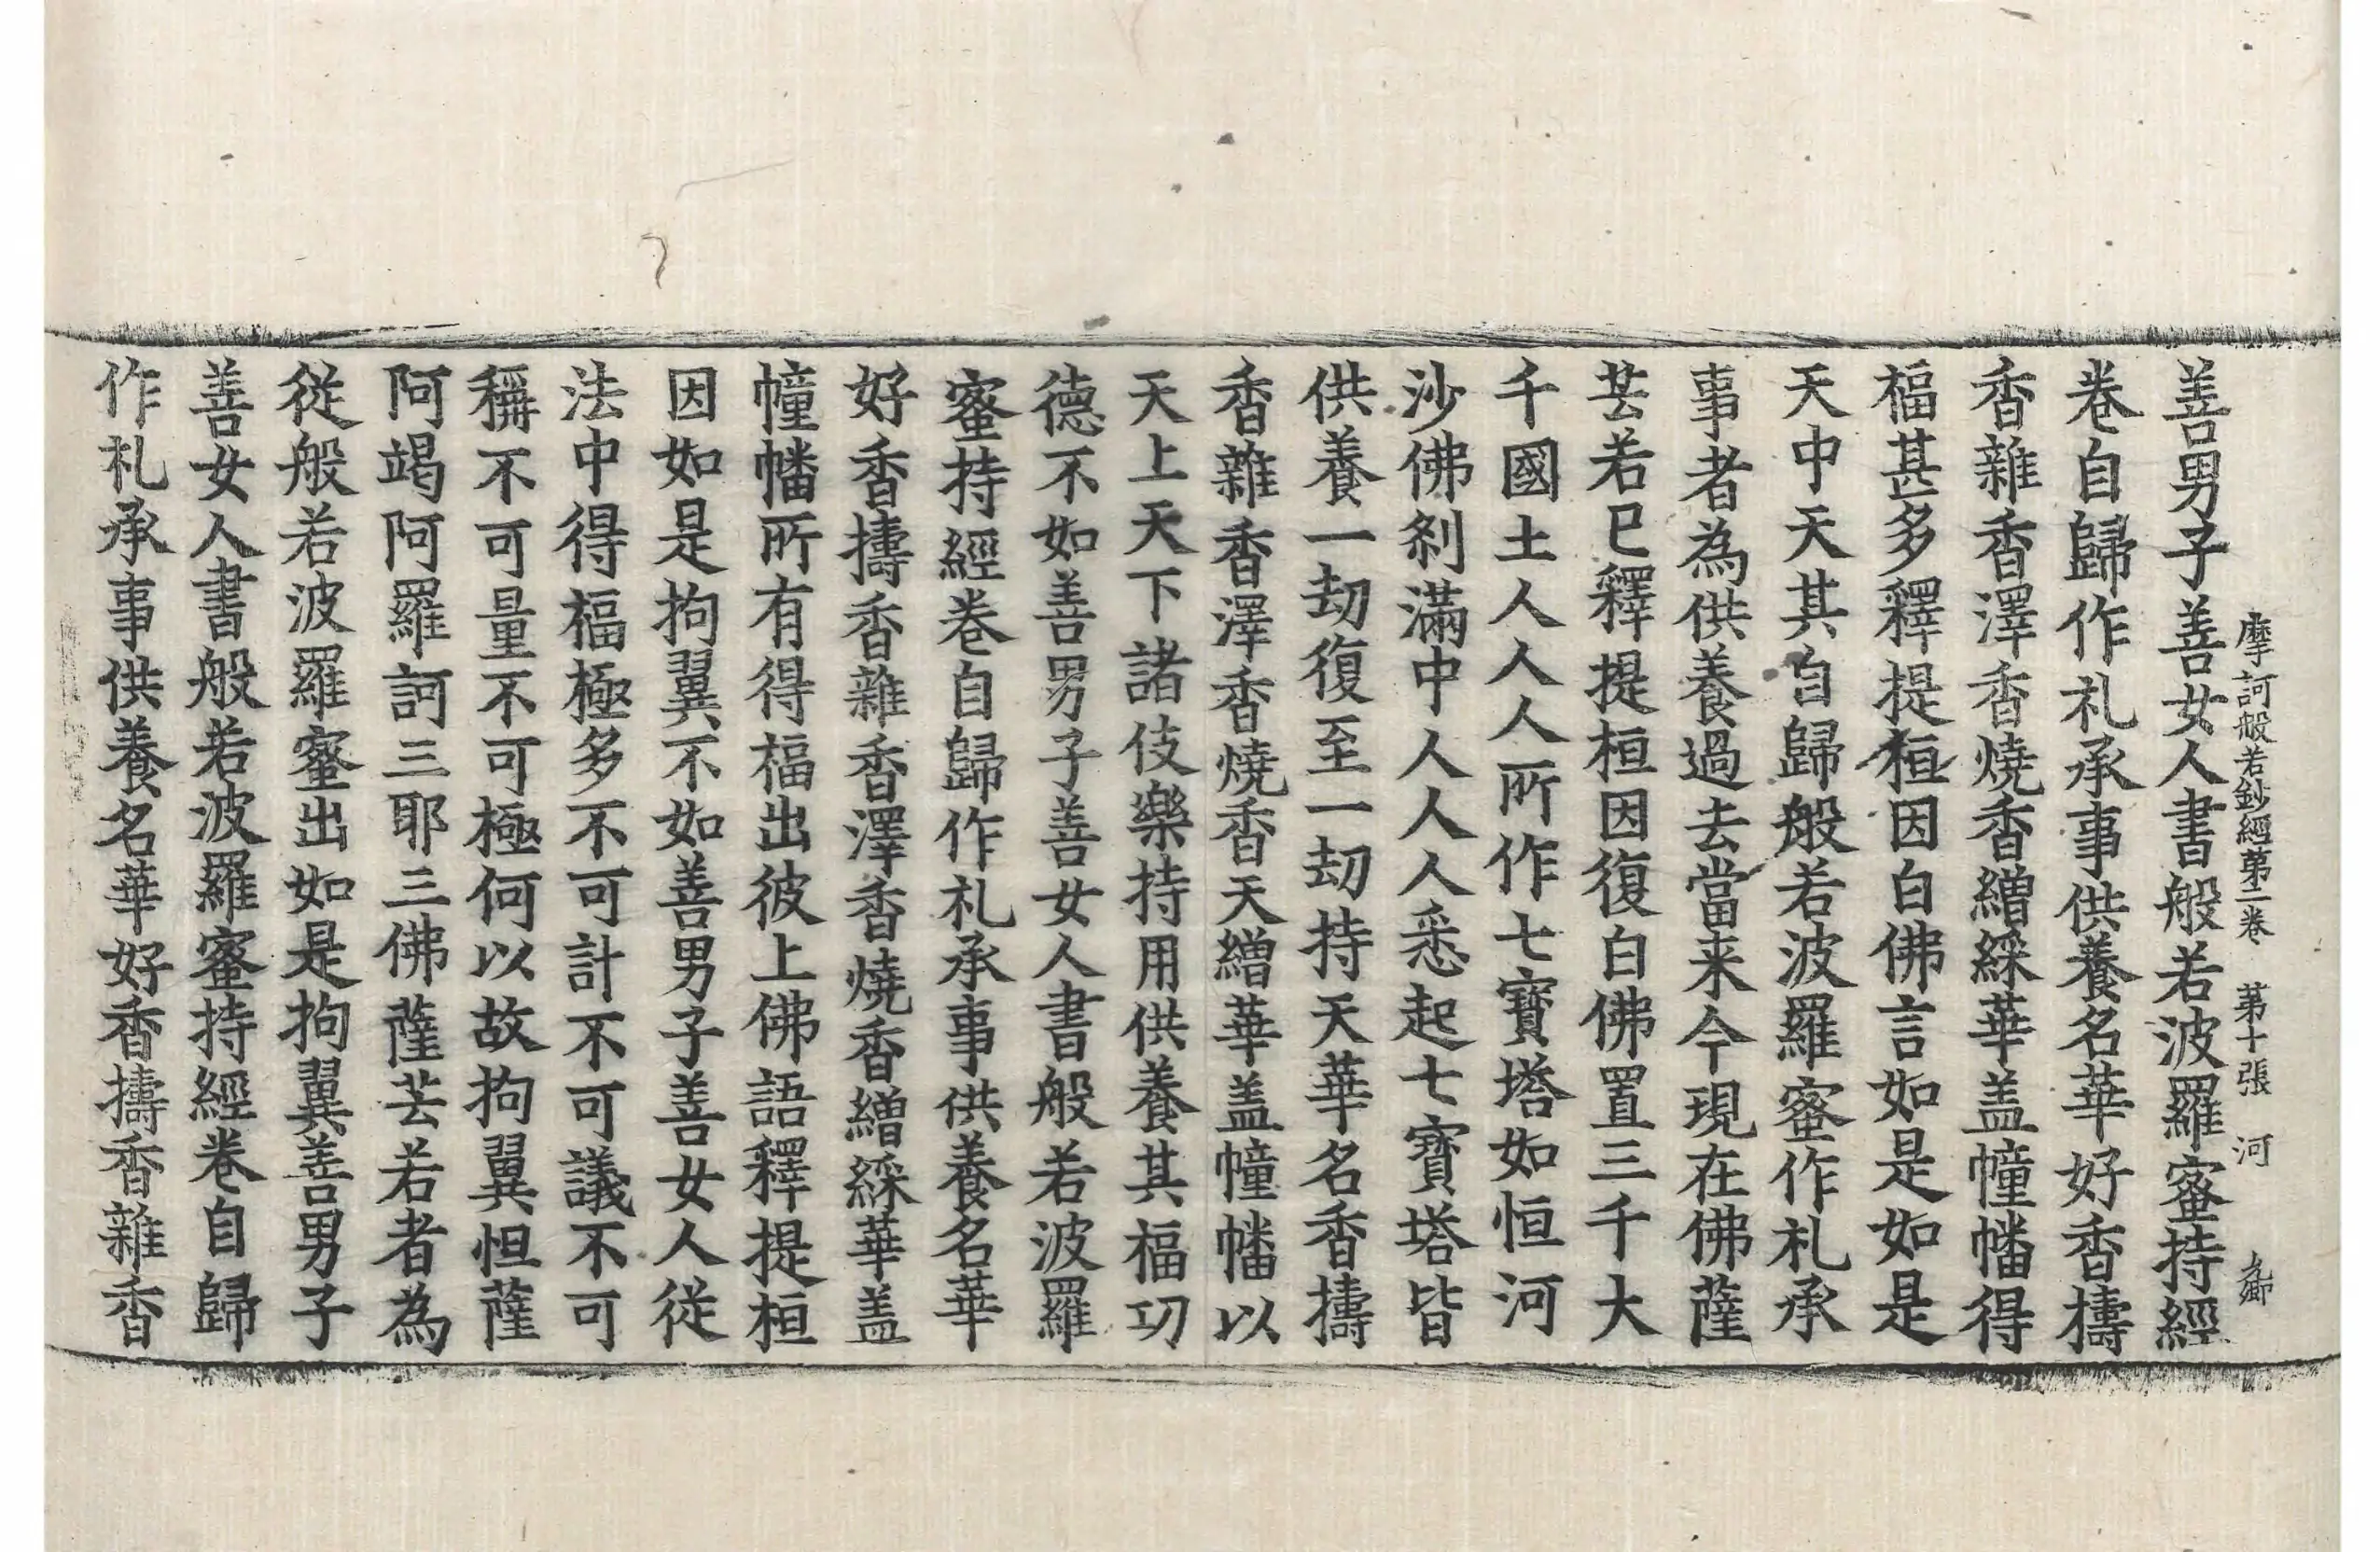 摩訶般若鈔經第二卷 第十張 河
善男子善女人書般若波羅蜜持經
卷自歸作札承事供養名華好香擣
香雜香澤香燒香繒綵華盖幢幡得
福甚多釋提桓因白佛言如是如是
天中天其自歸般若波羅蜜作札承
事者為供養過去當来今現在佛薩
芸若已釋提桓因復白佛置三千大
千國土人人人所作七寶塔如恒河
沙佛刹滿中人人人悉起七寶塔皆
供養一劫復至一劫持天華名香擣
香雜香澤香燒香天繒華盖幢幡以
天上天下諸伎樂持用供養其福功
德不如善男子善女人書般若波羅
蜜持經卷自歸作札承事供養名華
好香擣香雜香澤香燒香繒綵華盖
幢幡所有得福出彼上佛語釋提桓
因如是拘翼不如善男子善女人從
法中得福極多不可計不可議不可
稱不可量不可極何以故拘翼怛薩
阿竭阿羅訶三耶三佛薩芸若者為
從般若波羅蜜出如是拘翼善男子
善女人書般若波羅蜜持經卷自歸
作札承事供養名華好香擣香雜香